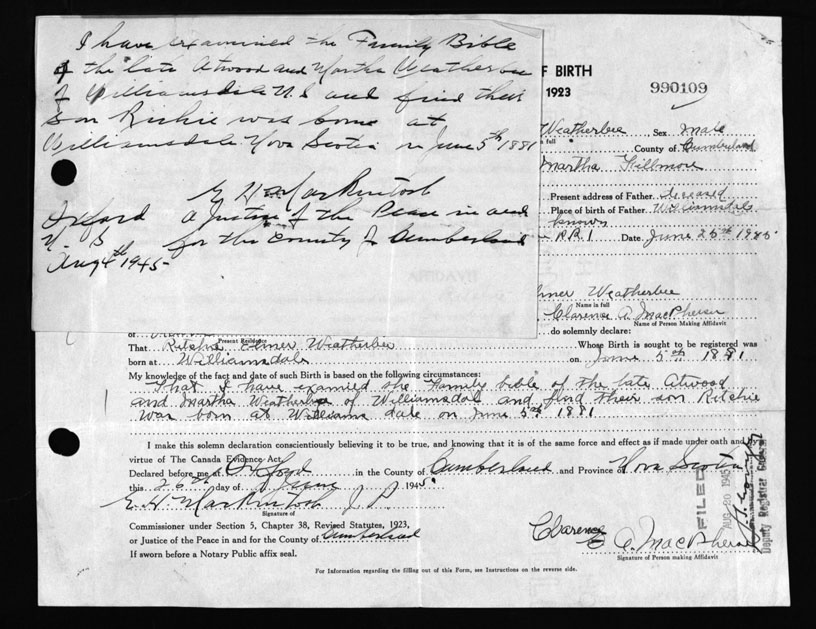 I have examined the Family Bible
of the late Atwood and Martha Weatherbee
of Williamsdale N.S and find their
Son Richie was born at
Williamsdale Nova Scotia on June 5th 1881
E W MacKintosh
Oxford a Justice of the Peace in and
N. S for the County of Cumberland
Aug 4th 1945
OF BIRTH
1923
990109
Weatherbee Sex Male
full
County of Cumberland
Martha Fillmore
Present address of Father deceased
Place of birth of Father Williamsdale
known
R.R.1 Date June 26th 1945
Elmer Weatherbee
Name in full
Clarence A. MacPherson
Name of Person Making Affidavit
of
Present Residence
do solemnly declare:
That Ritchie Elmer Weatherbee Whose Birth is sought to be registered was
born at Williamsdale on June 5th 1881
My knowledge of the fact and date of such Birth is based on the following circumstances:
That I have examied the Family bible of the late Atwood
and Martha Weatherbee of Williamsdal and find their son Ritchie
was born at Williams dale on June 5th 1881
I make this solemn declaration conscientiously believing it to be true, and knowing that it is of the same force and effect as if made under oath and by
virtue of The Canada Evidence Act.
Declared before me at Oxford in the County of Cumberland and Province of Nova Scotia
this 26th day of June 1945
E. W MacKintosh J. P.
Signature of
Commissioner under Section 5, Chapter 38, Revised Statutes, 1923,
or Justice of the Peace in and for the County of Cumberland
If sworn before a Notary Public affix seal.
Clarence A. MacPherson
Signature of Person making Affidavit
FILED
AUG 20 1945
Deputy Registrar General
For Information regarding the filling out of this Form, see Instructions on the reverse side.